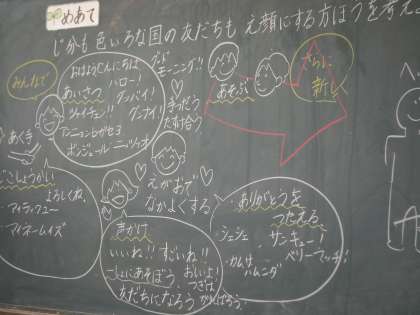 めあて
じぶんも色いろな国の友だちも え顔にする方ほうを考え
みんなで
おはようこんにちは
ハロー!
グッド
モーニング!!
あいさつ
グンバイ!
ツァイチェン!!
グッバイ!
アンニョンヒガセヨ
ボンジュール ニーツァオ
手つだう
たすけ合う
あそぶ
さらに
新しく
あく手
じこしょうかい
よろしくね。
・アイラブユー
・マイネームイズ
えがおで
なかよくする
声かけ
いいね!! すごいね!!
いっしょにあそぼう おしいよ!
友だちになろう
つぎは
がんばろう。
ありがとうを
つたえる
・シェシェ
・サンキュー!
ベリーマッチ!
・カムサ
ハムニダ